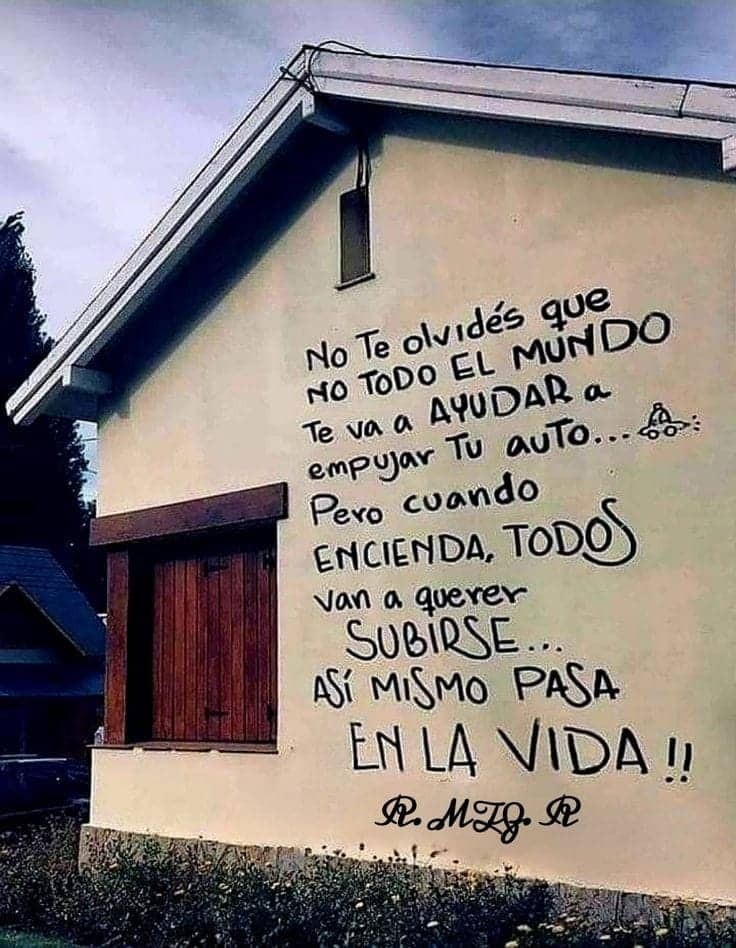 No Te olvidés que
NO TODO EL MUNDO
Te va a AYUDAR a
empujar TU auTO...
Pero cuando
ENCIENDA, TODOS
van a querer
SUBIRSE...
ASÍ MISMO PASA
EN LA VIDA!!
R. MZG. R